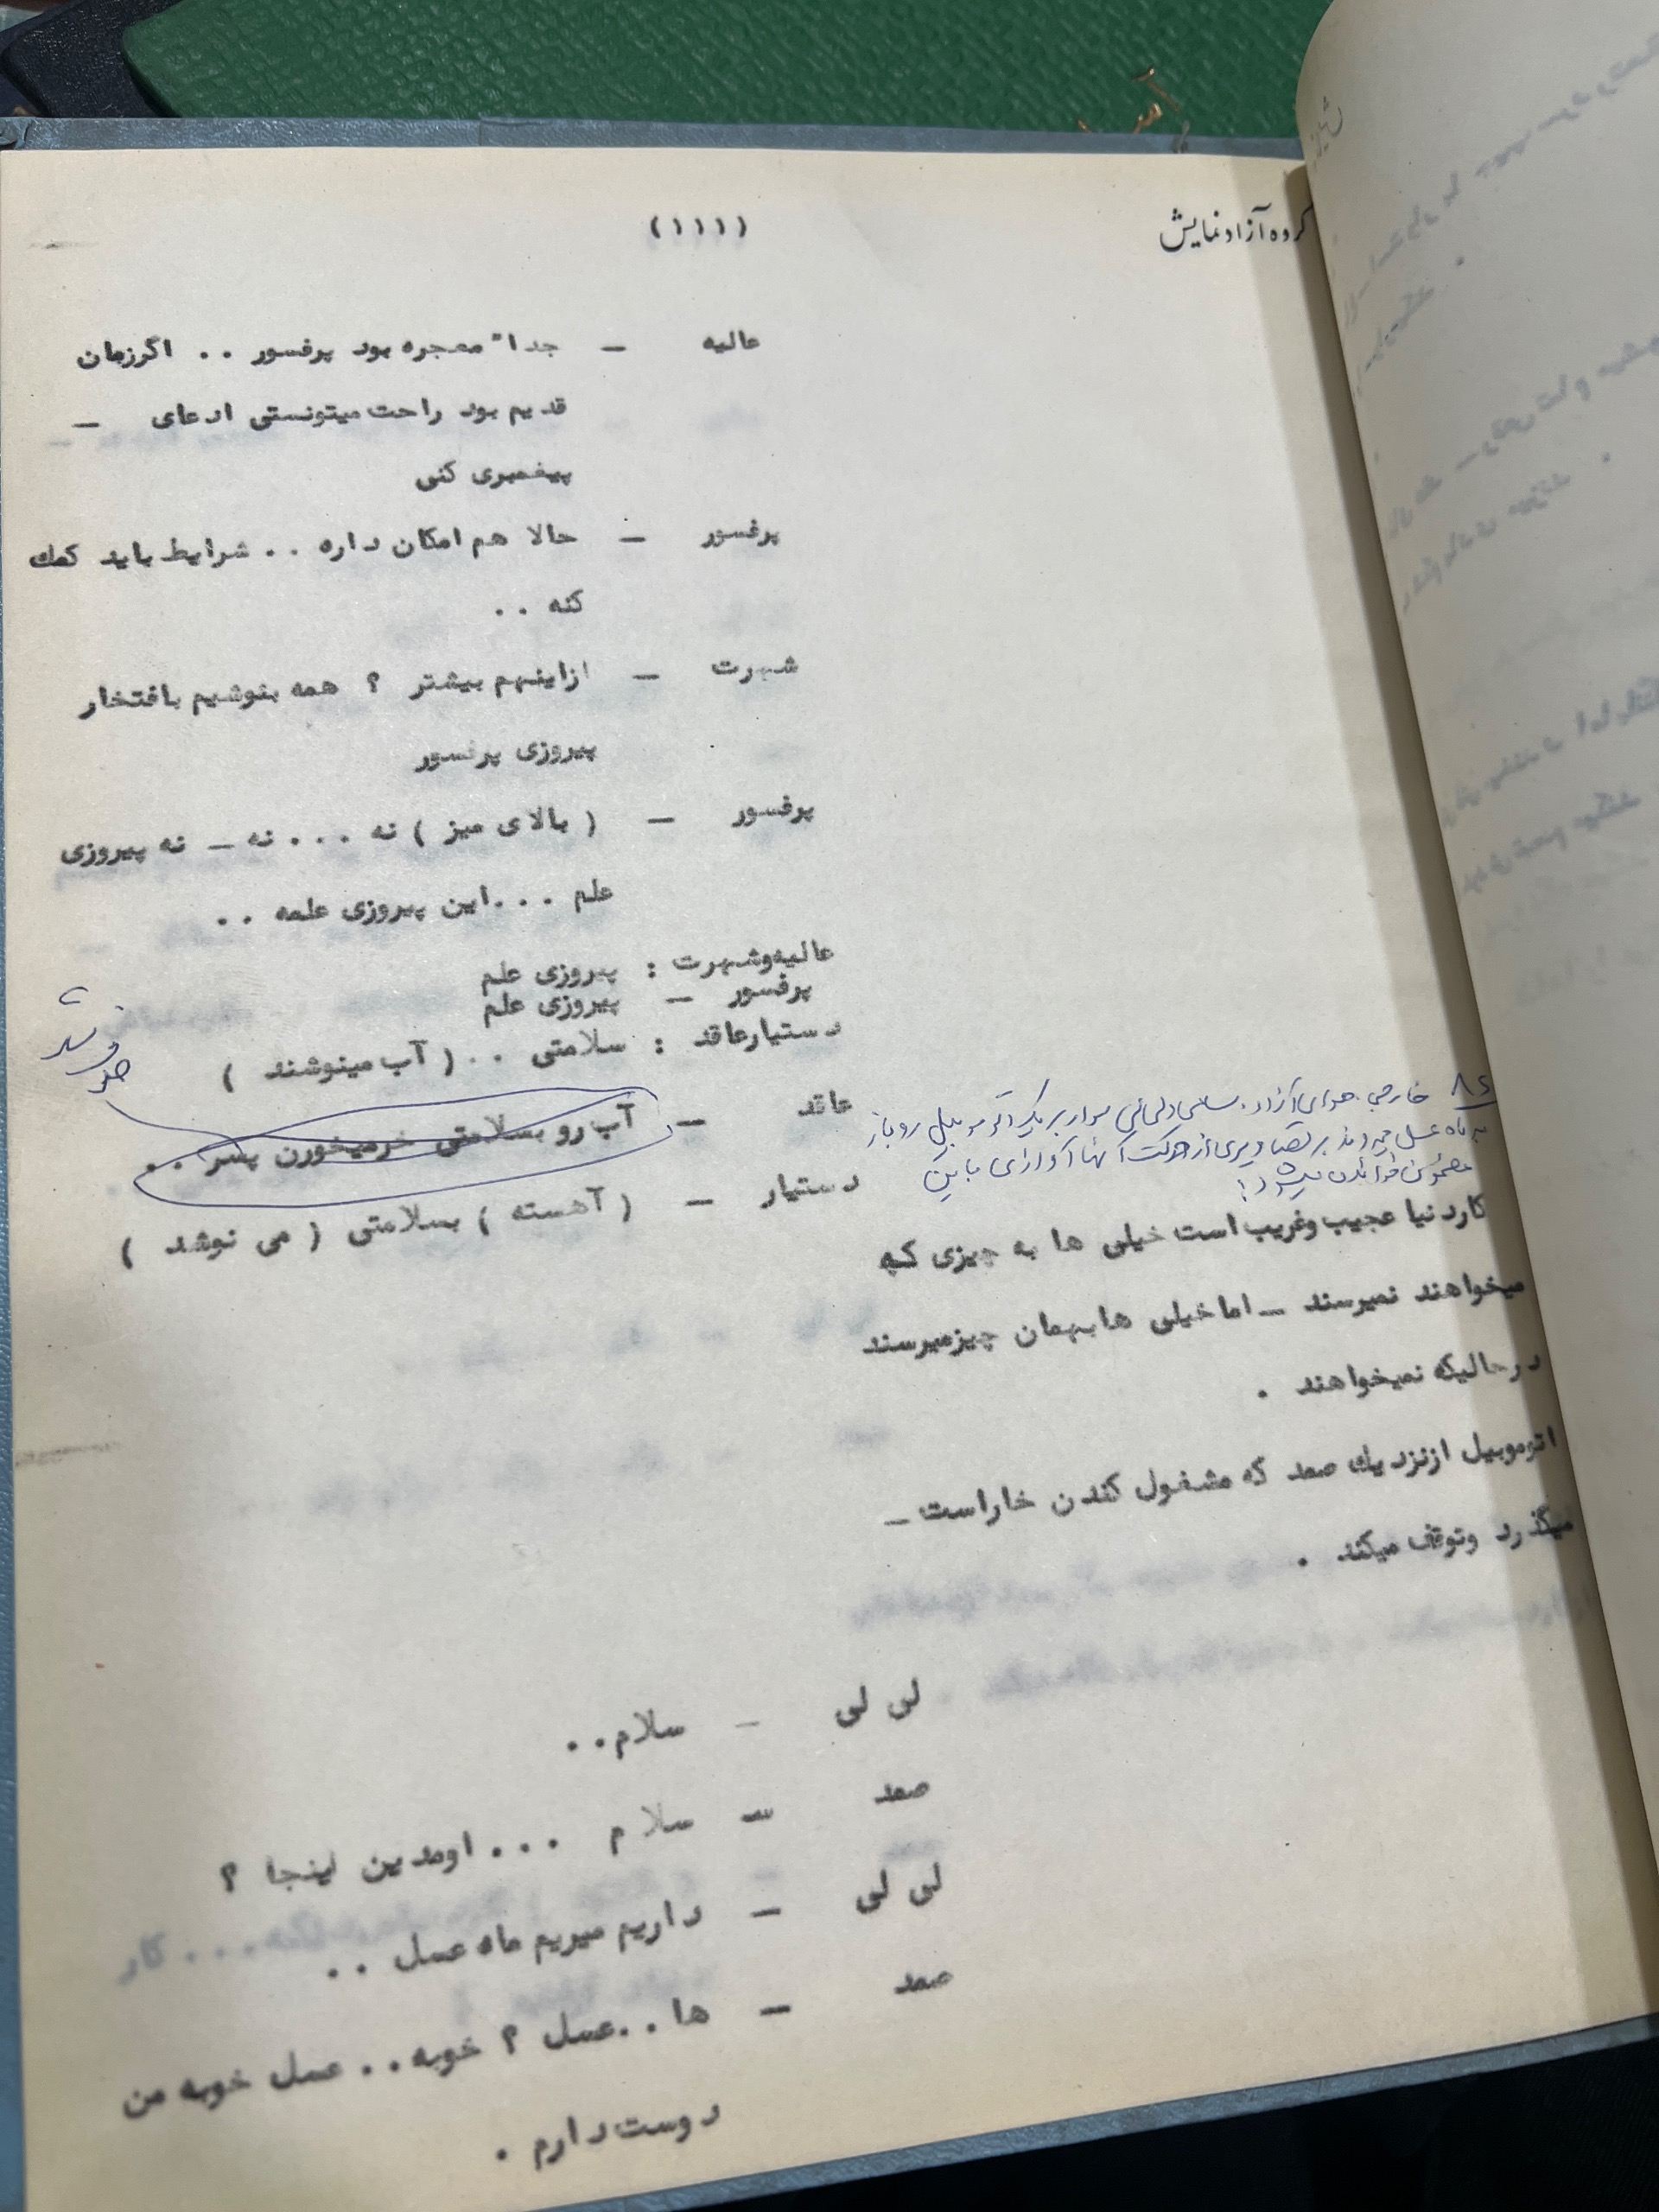 گروه آزاد نمایش
(۱۱۱)
عالیه – جداً معجزه بود پرفسور . . اگرزمان
قدیم بود راحت میتونستی ادعای –
پیغمبری کنی
پرفسور – حالا هم امکان داره . . شرایط باید کمك
کنه . .
شهرت – ازاینهم بیشتر ؟ همه بنوشیم بافتخار
پیروزی پرفسور
پرفسور – ( بالای میز ) نه . . . نه – نه پیروزی
علم . . .این پیروزی علمه . .
عالیه‌وشهرت : پیروزی علم
پرفسور – پیروزی علم
دستیارعاقد : سلامتی . . ( آب مینوشند )
عاقد – آب رو بسلامتی خرمیخورن پسر . .
دستیار – ( آهسته ) بسلامتی ( می نوشد )
خارجی . هوای آزاد . سوار بر یک اتوموبیل روباز
به ماه عسل میروند بر تصاویری از حرکت آنها آوازی با این
مضمون خوانده میشود :
کاردنیا عجیب وغریب است خیلی ها به چیزی که
میخواهند نمیرسند – اما خیلی هابهمان چیزمیرسند
درحالیکه نمیخواهند .
اتوموبیل ازنزدیك صمد که مشغول کندن خاراست –
میگذرد وتوقف میکند .
لی لی – سلام . .
صمد – سلام . . . اومدین اینجا ؟
لی لی – داریم میریم ماه عسل . .
صمد – ها . . عسل ؟ خوبه . . عسل خوبه من
دوست دارم .